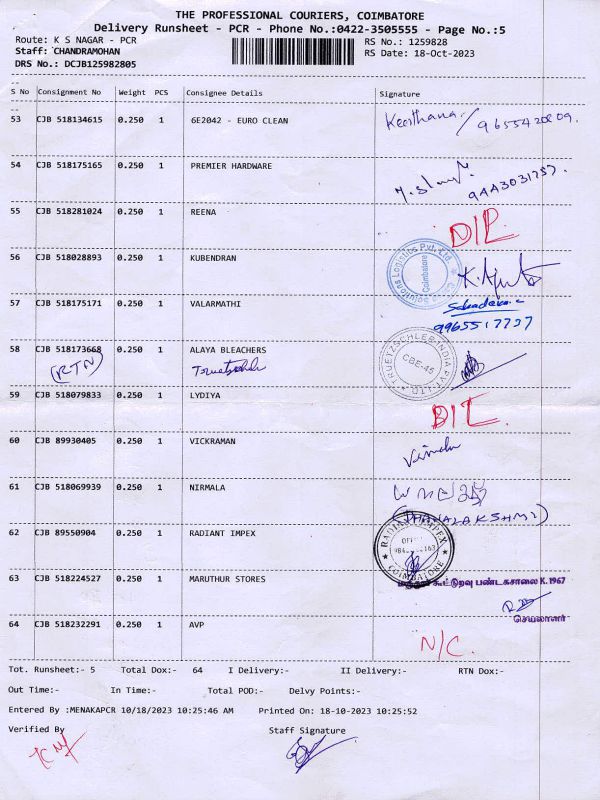 THE PROFESSIONAL COURIERS, COIMBATORE
Delivery Runsheet - PCR - Phone No.:0422-3505555 - Page No.:5
Route: K S NAGAR - PCR RS No.: 1259828
Staff: CHANDRAMOHAN RS Date: 18-Oct-2023
DRS No.: DCJB125982805
S No Consignment No Weight PCS Consignee Details Signature
53 CJB 518134615 0.250 1 6E2042 - EURO CLEAN Keerthana/
54 CJB 518175165 0.250 1 PREMIER HARDWARE
55 CJB 518281024 0.250 1 REENA D/L
Solutions Logistics Pvt. Ltd.
Coimbatore
56 CJB 518028893 0.250 1 KUBENDRAN
57 CJB 518175171 0.250 1 VALARMATHI
9965517737
58 CJB 518173668 0.250 1 ALAYA BLEACHERS
(RTN)
TRUETZSCHLER INDIA PVT LTD
CBE-45
59 CJB 518079833 0.250 1 LYDIYA D/L
60 CJB 89930405 0.250 1 VICKRAMAN
61 CJB 518069939 0.250 1 NIRMALA
(DHANALAKSHMI)
62 CJB 89550904 0.250 1 RADIANT IMPEX
RADIANT IMPEX
COIMBATORE
63 CJB 518224527 0.250 1 MARUTHUR STORES
கூட்டுறவு பண்டகசாலை K. 1967
செயலாளர்
64 CJB 518232291 0.250 1 AVP N/C.
Tot. Runsheet:- 5 Total Dox:- 64 I Delivery:- II Delivery:- RTN Dox:-
Out Time:- In Time:- Total POD:- Delvy Points:-
Entered By :MENAKAPCR 10/18/2023 10:25:46 AM Printed On: 18-10-2023 10:25:52
Verified By Staff Signature